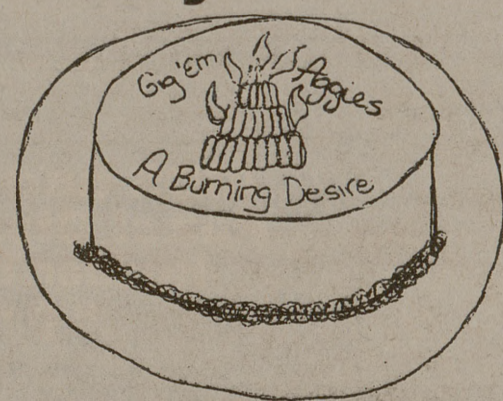 Gig'Em Aggies
A Burning Desire